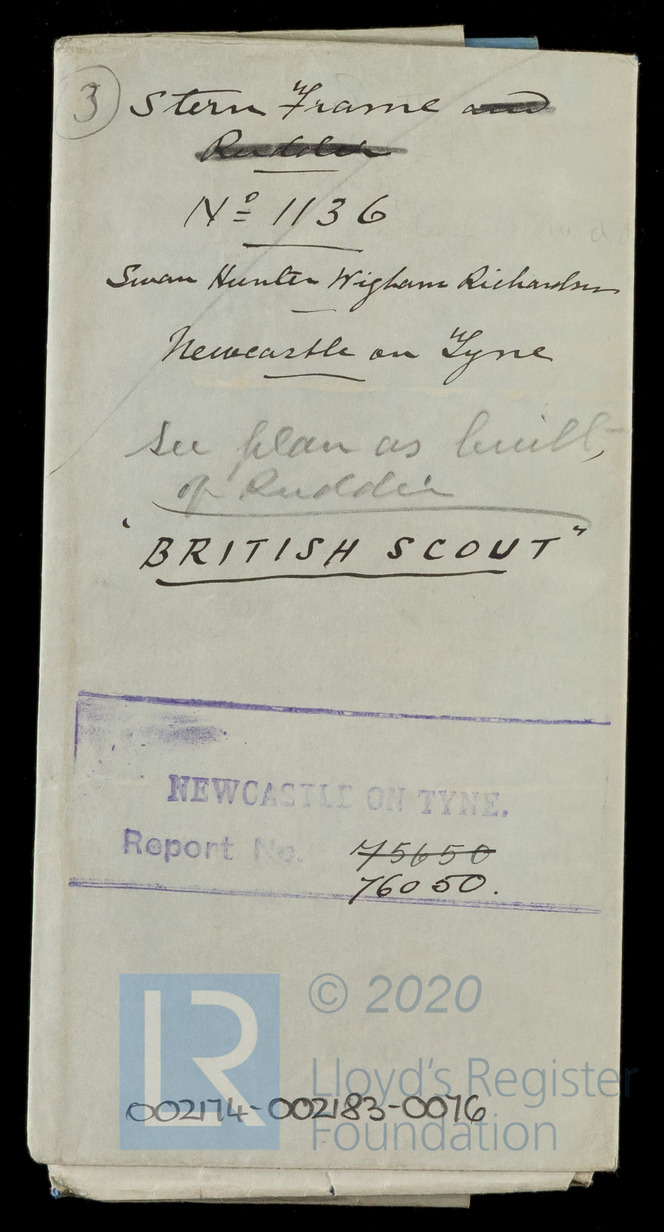 3 Stern Frame and
Rudder
Nº 1136
Swan Hunter Wigham Richardson
Newcastle on Tyne
See plan as built,
of Rudder
"BRITISH SCOUT"
NEWCASTLE ON TYNE.
Report No. 75650
76050.
LR
© 2020
Lloyd's Register
Foundation
002174-002183-0076